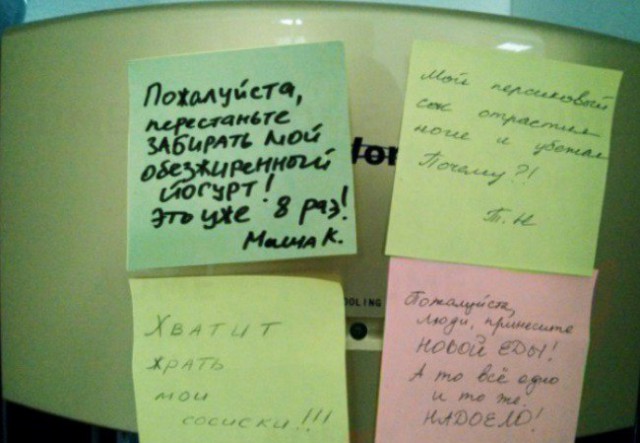 Пожалуйста,
перестаньте
ЗАБИРАТЬ МОЙ
обезжиренный
йогурт!
Это уже 8 раз!
Маша К.
Мой персиковый
сок отрастил
ноги и убежал
Почему?!
Т. Н
ХВАТИТ
ЖРАТЬ
МОИ
СОСИСКИ!!!
Пожалуйста,
люди, принесите
НОВОЙ ЕДЫ!
А то всё одно
и то же.
НАДОЕЛО!
OOLING